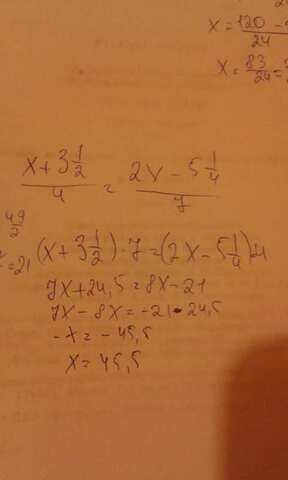 x = 120 -
24
x = 83/24 =
x + 3 1/2 / 4 = 2x - 5 1/4 / 7
49/2
= 21 (x + 3 1/2) · 7 = (2x - 5 1/4) 4
7x + 24,5 = 8x - 21
7x - 8x = -21 - 24,5
-x = - 45,5
x = 45,5